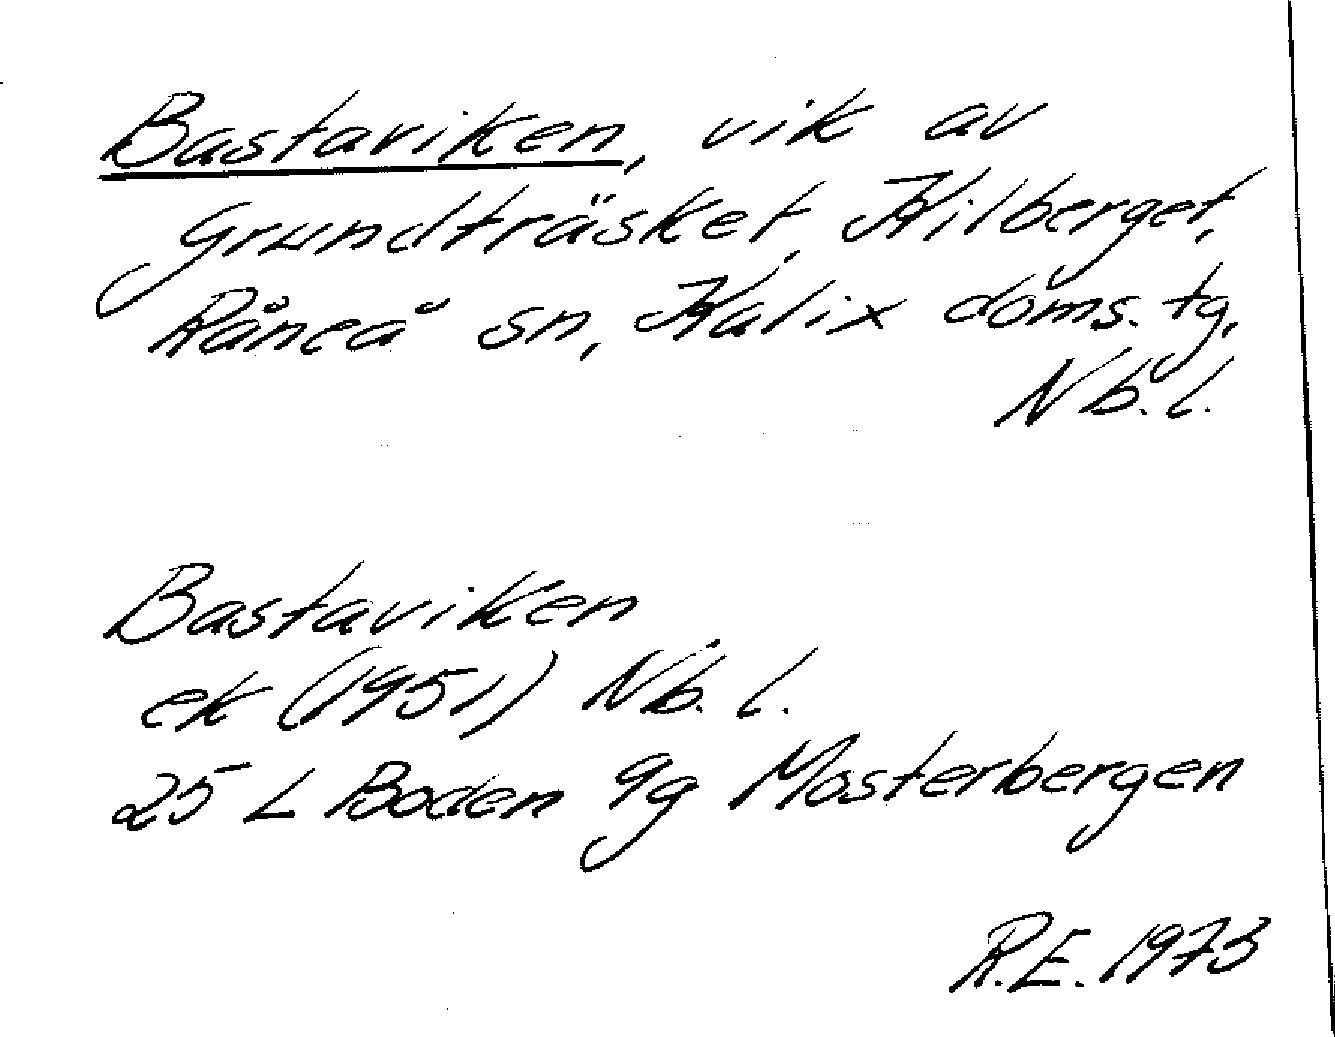 Bastaviken, vik av
Grundträsket, Hilberget,
Råneå sn, Kalix doms. tg,
Nb. l.
Bastaviken
ek (1951) Nb. l.
25 L Boden 9g Mosterbergen
R.E. 1973